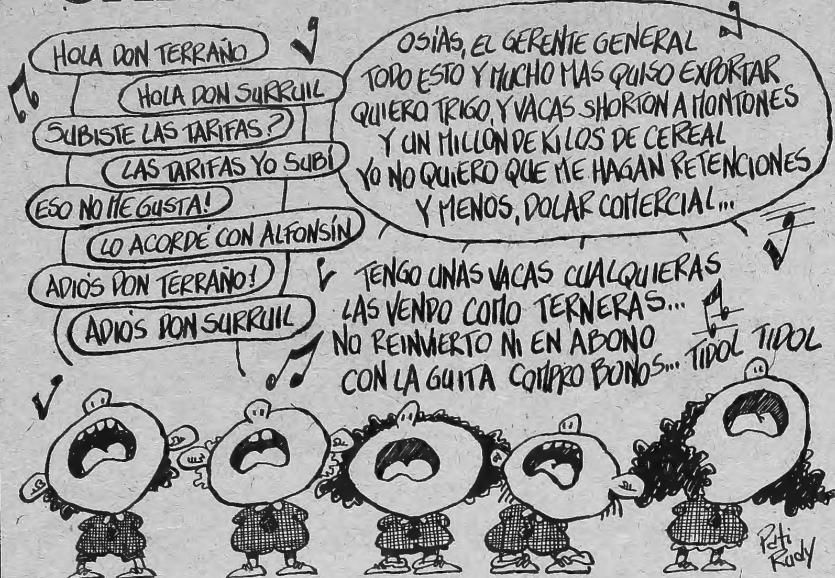 HOLA DON TERRAÑO
HOLA DON SURRUIL
SUBISTE LAS TARIFAS?
LAS TARIFAS YO SUBÍ
ESO NO ME GUSTA!
LO ACORDÉ CON ALFONSÍN
ADIÓS DON TERRAÑO!
ADIÓS DON SURRUIL
OSÍAS, EL GERENTE GENERAL
TODO ESTO Y MUCHO MAS QUISO EXPORTAR
QUIERO TRIGO, Y VACAS SHORTON A MONTONES
Y UN MILLON DE KILOS DE CEREAL
YO NO QUIERO QUE ME HAGAN RETENCIONES
Y MENOS, DOLAR COMERCIAL...
TENGO UNAS VACAS CUALQUIERAS
LAS VENDO COMO TERNERAS...
NO REINVIERTO NI EN ABONO
CON LA GUITA COMPRO BONOS... TIDOL TIDOL
Pati
Rudy